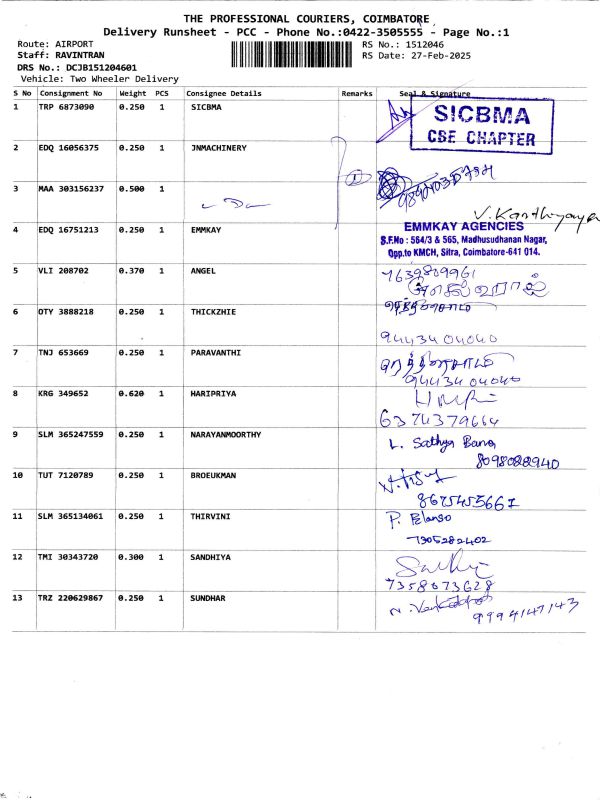 THE PROFESSIONAL COURIERS, COIMBATORE
Delivery Runsheet - PCC - Phone No.:0422-3505555 - Page No.:1
Route: AIRPORT RS No.: 1512046
Staff: RAVINTRAN RS Date: 27-Feb-2025
DRS No.: DCJB151204601
Vehicle: Two Wheeler Delivery
S No Consignment No Weight PCS Consignee Details Remarks Seal & Signature
1 TRP 6873090 0.250 1 SICBMA
SICBMA
CBE CHAPTER
2 EDQ 16056375 0.250 1 JNMACHINERY
3 MAA 303156237 0.500 1
1
V. Karthiyaya
4 EDQ 16751213 0.250 1 EMMKAY
EMMKAY AGENCIES
S.F.No : 564/3 & 565, Madhusudhanan Nagar,
Opp.to KMCH, Sitra, Coimbatore-641 014.
5 VLI 208702 0.370 1 ANGEL
7639809961
6 OTY 3888218 0.250 1 THICKZHIE
9443404040
7 TNJ 653669 0.250 1 PARAVANTHI
9443404040
8 KRG 349652 0.620 1 HARIPRIYA
6374379664
9 SLM 365247559 0.250 1 NARAYANMOORTHY
L. Sathya Bana
8098028940
10 TUT 7120789 0.250 1 BROEUKMAN
8675455667
11 SLM 365134061 0.250 1 THIRVINI
P. Elanso
7305282402
12 TMI 30343720 0.300 1 SANDHIYA
7358073628
13 TRZ 220629867 0.250 1 SUNDHAR
9994147143